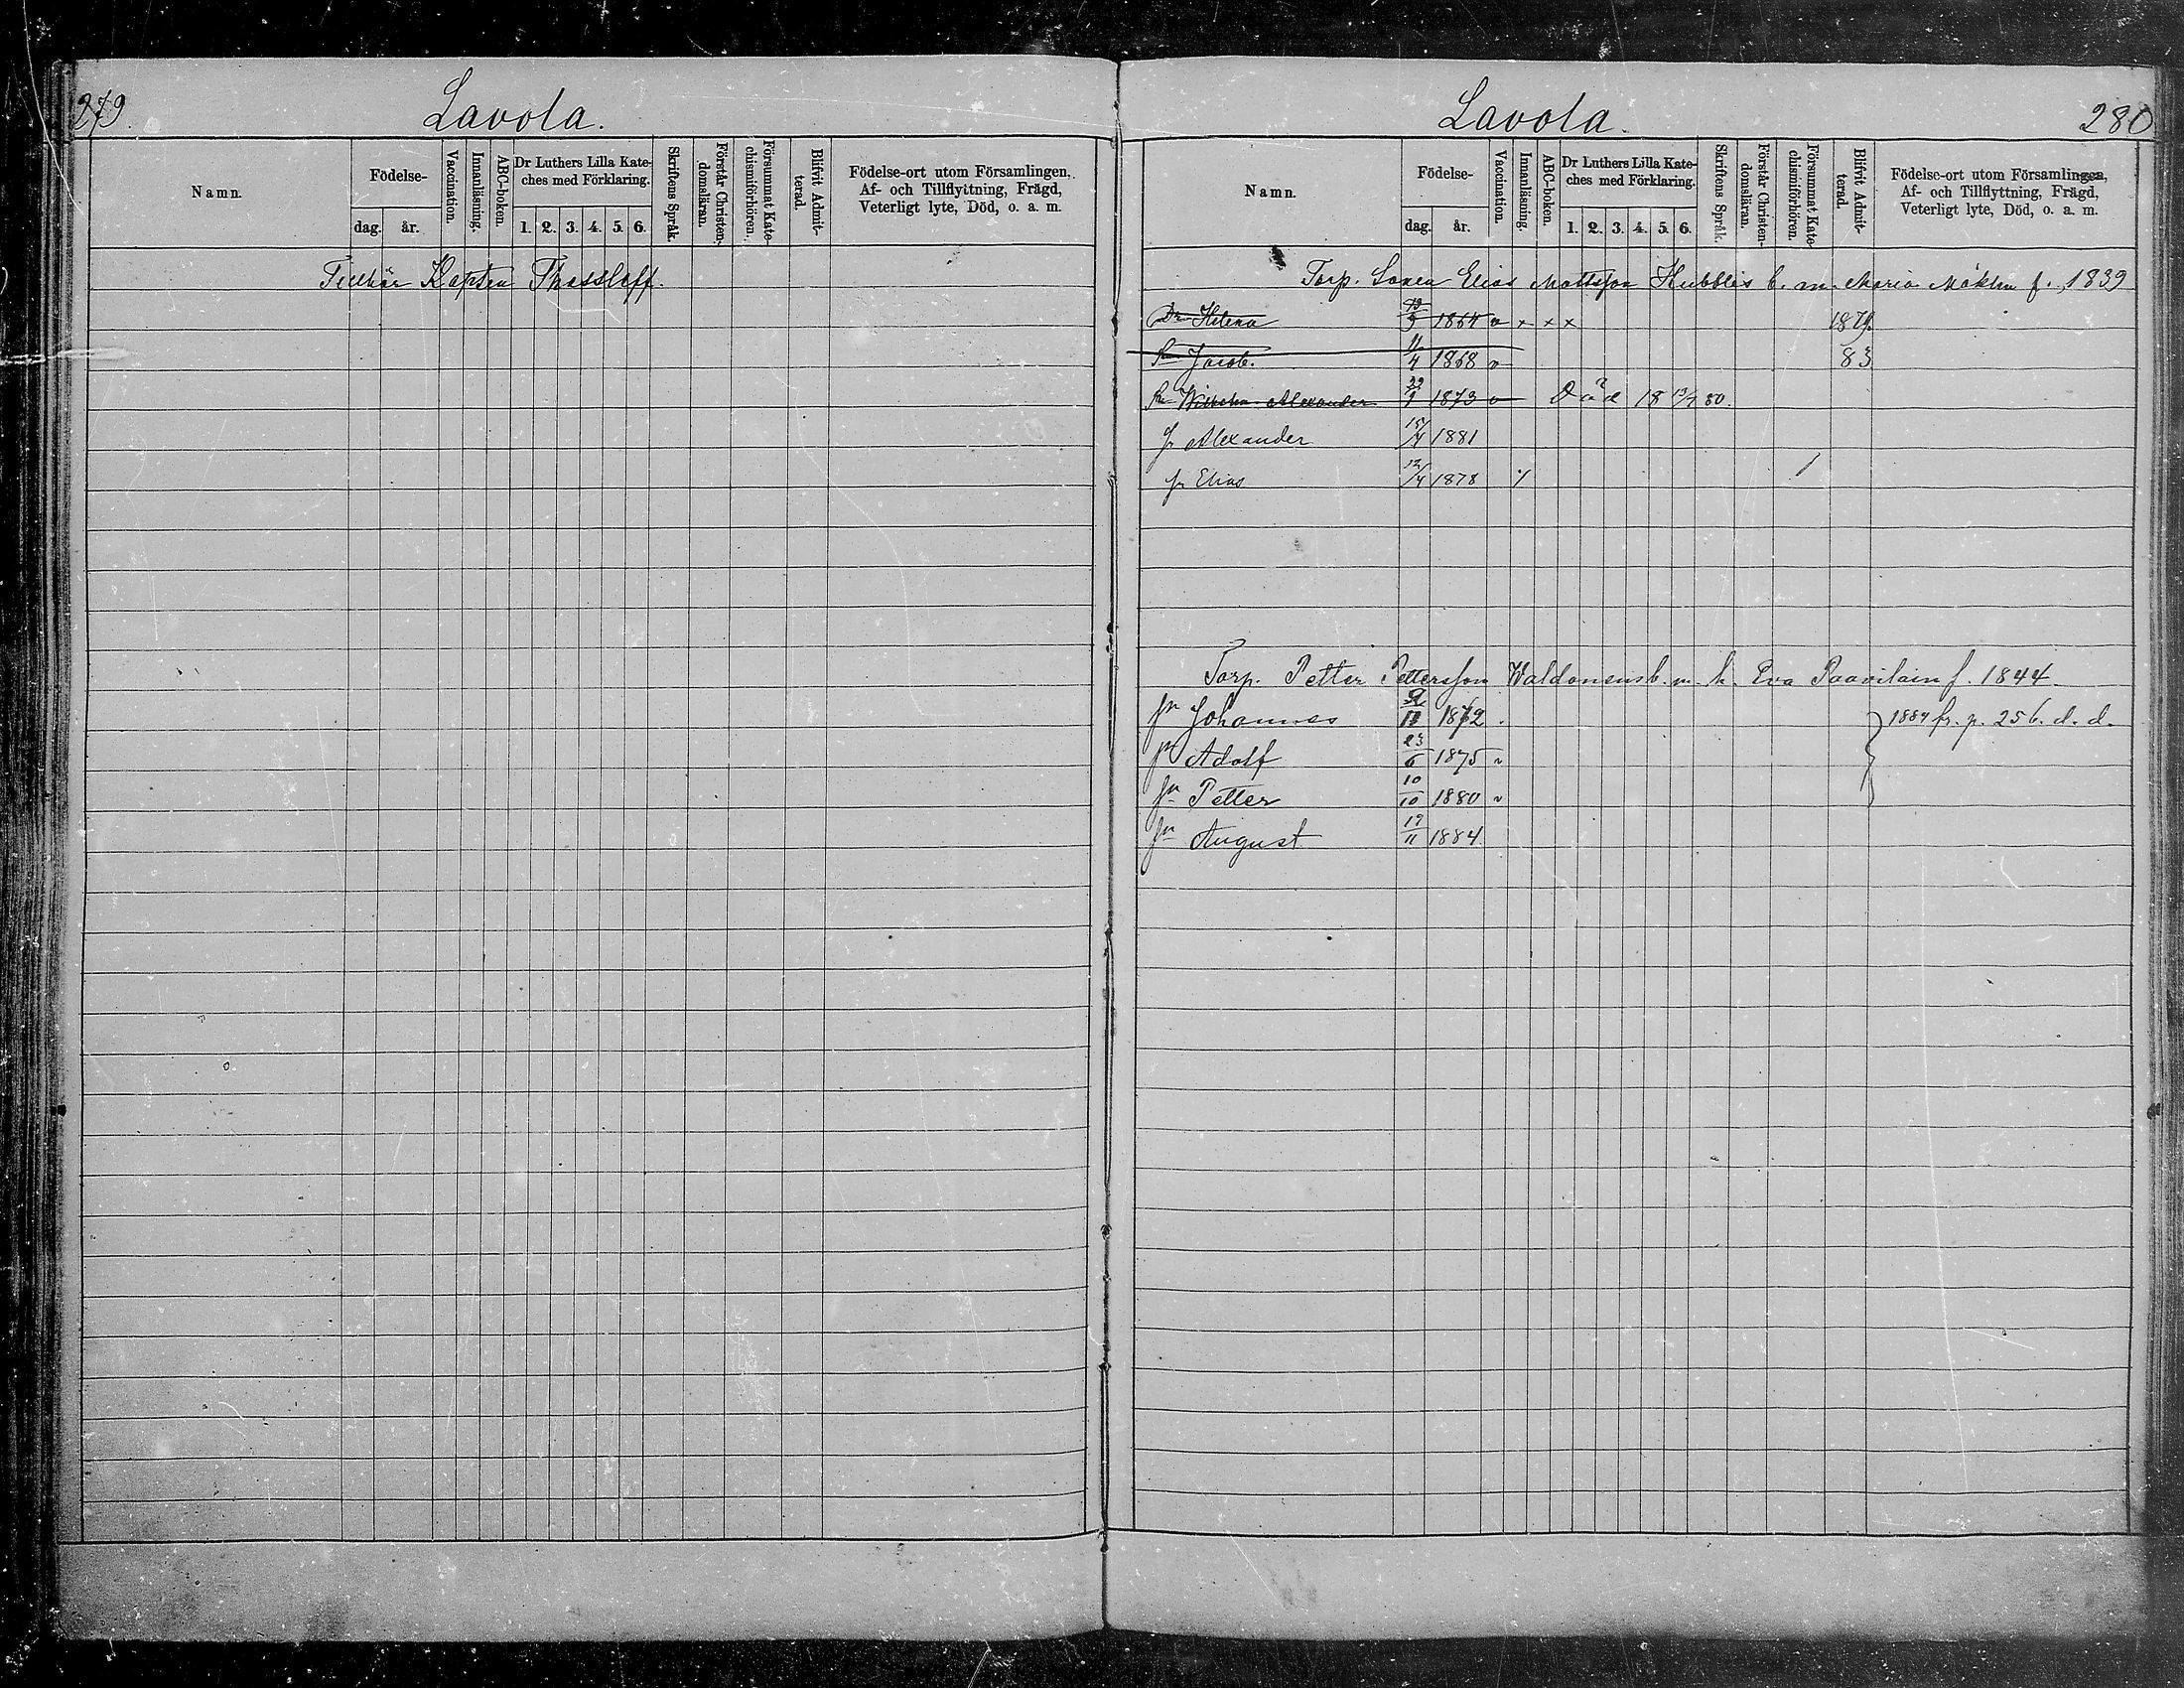 279.
Lavola.
Namn.
Födelse-
dag.
år.
Vaccination.
Innanläsning.
ABC-boken.
Dr Luthers Lilla Kate-
ches med Förklaring.
1. 2. 3. 4. 5. 6.
Skriftens Språk.
Förstår Christen-
domsläran.
Försummat Kate-
chismiförhören.
Blifvit Admit-
terad.
Födelse-ort utom Församlingen,
Af- och Tillflyttning, Frägd,
Veterligt lyte, Död, o. a. m.
Tillhör Kapten Thessleff.
Lavola.
280
Namn.
Födelse-
dag.
år.
Vaccination.
Innanläsning.
ABC-boken.
Dr Luthers Lilla Kate-
ches med Förklaring.
1. 2. 3. 4. 5. 6.
Skriftens Språk.
Förstår Christen-
domsläran.
Försummat Kate-
chismiförhören.
Blifvit Admit-
terad.
Födelse-ort utom Församlingen,
Af- och Tillflyttning, Frägd,
Veterligt lyte, Död, o. a. m.
Torp. Elias Mattsson b. m. Maria f. 1839
Dr Helena 1864 v x x x
Sn Jacob. 11/4 1868 v 83
Sn Wilhelm Alexander 1873 v Död 18 13/7 80.
Alexander 15/4 1881
Elias 12/4 1878
Torp. Petter Pettersson b. m. h. Eva Paavilain f. 1844
sn Johannes 1872 1884 fr. p. 256. d. d.
sn Adolf 23/6 1875
sn Petter 10/10 1880
sn August 19/11 1884.